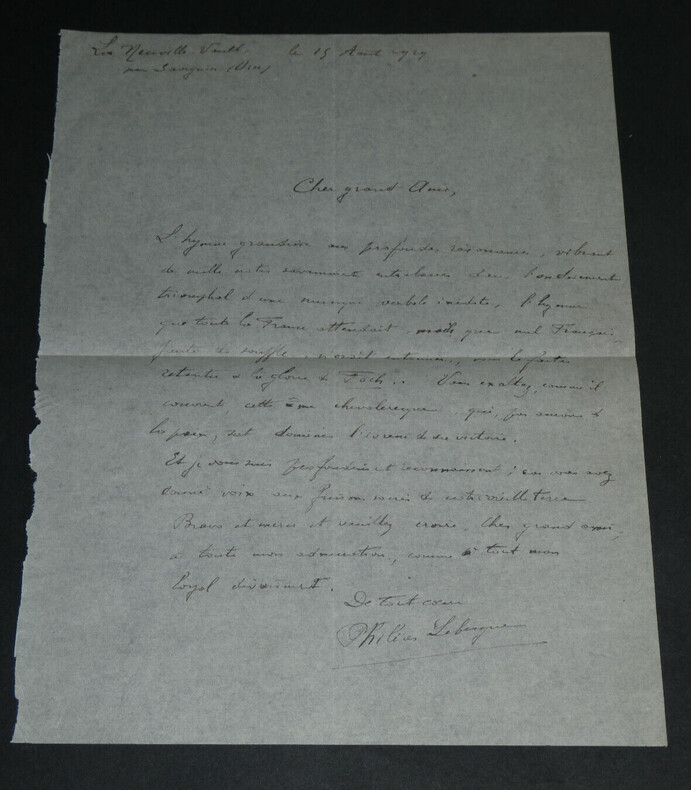 La Neuville-Vault le 15 Août 1929
par Savignies (Oise)
Cher grand Ami,
L'hymne grandiose aux profondes résonances, vibrant
de mille notes savamment entrelacées d'un bondissement
triomphal d'une musique verbale inédite, l'hymne
que toute la France attendait, mais que nul Français,
faute de souffle, n'avait entonné, vous le faites
retentir à la gloire de Foch. Vous exaltez, comme il
convient, cette âme chevaleresque qui, par amour de
la paix, sut dominer l'ivresse de sa victoire.
Et je vous suis profondément reconnaissant; car vous avez
donné voix aux frissons sacrés de notre vieille terre
Bravo et merci et veuillez croire, Cher grand ami,
à toute mon admiration, comme à tout mon
loyal dévouement.
De tout cœur
Philéas Lebesgue